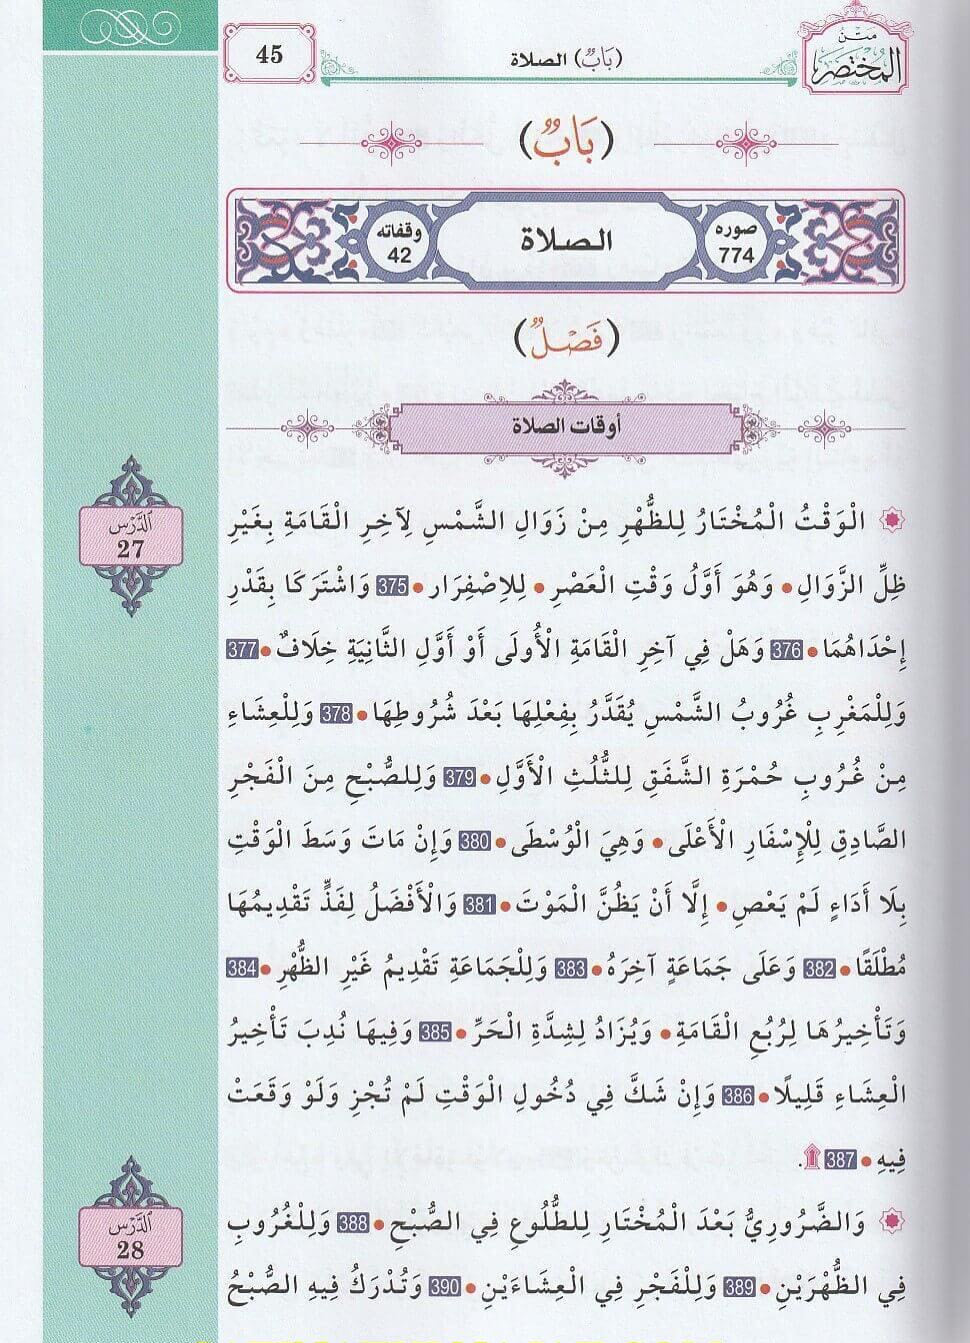 متن
المختصر
(بَابٌ) الصلاة
45
(بَابٌ)
صوره
774
الصلاة
وقفاته
42
(فَصْلٌ)
أوقات الصلاة
الدَّرْس
27
الْوَقْتُ الْمُخْتَارُ لِلظُّهْرِ مِنْ زَوَالِ الشَّمْسِ لِآخِرِ الْقَامَةِ بِغَيْرِ
ظِلِّ الزَّوَالِ • وَهُوَ أَوَّلُ وَقْتِ الْعَصْرِ • لِلِاصْفِرَارِ • 375 وَاشْتَرَكَا بِقَدْرِ
إِحْدَاهُمَا • 376 وَهَلْ فِي آخِرِ الْقَامَةِ الْأُولَى أَوْ أَوَّلِ الثَّانِيَةِ خِلَافٌ • 377
وَلِلْمَغْرِبِ غُرُوبُ الشَّمْسِ يُقَدَّرُ بِفِعْلِهَا بَعْدَ شُرُوطِهَا • 378 وَلِلْعِشَاءِ
مِنْ غُرُوبِ حُمْرَةِ الشَّفَقِ لِلثُّلُثِ الْأَوَّلِ • 379 وَلِلصُّبْحِ مِنَ الْفَجْرِ
الصَّادِقِ لِلْإِسْفَارِ الْأَعْلَى • وَهِيَ الْوُسْطَى • 380 وَإِنْ مَاتَ وَسَطَ الْوَقْتِ
بِلَا أَدَاءٍ لَمْ يَعْصِ • إِلَّا أَنْ يَظُنَّ الْمَوْتَ • 381 وَالْأَفْضَلُ لِفَذٍّ تَقْدِيمُهَا
مُطْلَقًا • 382 وَعَلَى جَمَاعَةٍ آخِرَهُ • 383 وَلِلْجَمَاعَةِ تَقْدِيمُ غَيْرِ الظُّهْرِ • 384
وَتَأْخِيرُهَا لِرُبُعِ الْقَامَةِ • وَيُزَادُ لِشِدَّةِ الْحَرِّ • 385 وَفِيهَا نُدِبَ تَأْخِيرُ
الْعِشَاءِ قَلِيلًا • 386 وَإِنْ شَكَّ فِي دُخُولِ الْوَقْتِ لَمْ تُجْزِ وَلَوْ وَقَعَتْ
فِيهِ • 387 .
الدَّرْس
28
وَالضَّرُورِيُّ بَعْدَ الْمُخْتَارِ لِلطُّلُوعِ فِي الصُّبْحِ • 388 وَلِلْغُرُوبِ
فِي الظُّهْرَيْنِ • 389 وَلِلْفَجْرِ فِي الْعِشَاءَيْنِ • 390 وَتُدْرَكُ فِيهِ الصُّبْحُ